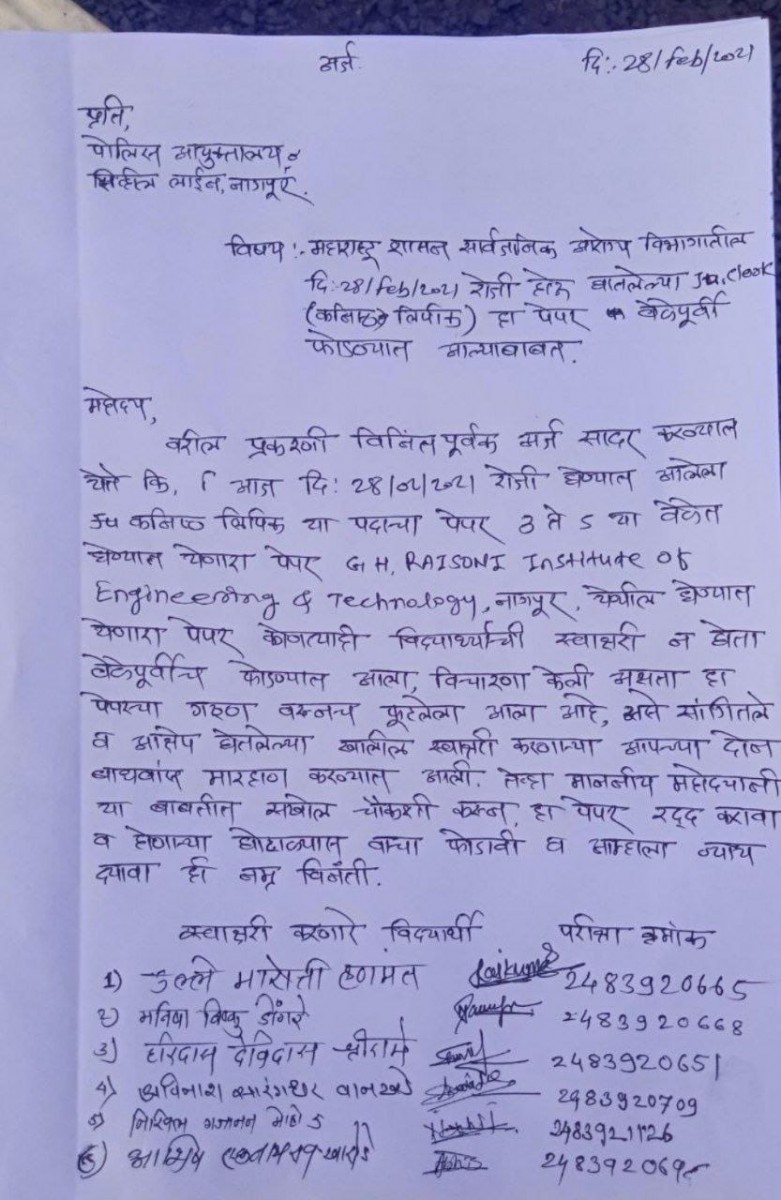 अर्ज
दि:- 28/Feb/2021
प्रति,
पोलिस आयुक्तालय
सिव्हील लाईन, नागपूर.
विषय:- महाराष्ट्र शासन सार्वजनिक आरोग्य विभागातील
दि:28/Feb/2021 रोजी होऊ घातलेल्या Ju. Cleark
(कनिष्ठ लिपीक) हा पेपर वेळेपूर्वी
फोडण्यात आल्याबाबत.
महोदय,
वरील प्रकरणी विनिंतपूर्वक अर्ज सादर करण्यात
येते कि, आज दि: 28/02/2021 रोजी घेण्यात आलेला
कनिष्ठ लिपिक या पदाचा पेपर 3 ते 5 या वेळेत
घेण्यात येणारा पेपर G.H. RAISONI Institute of
Engineering & Technology, नागपूर, येथील घेण्यात
येणारा पेपर कोणत्याही विद्यार्थ्यांची स्वाक्षरी न घेता
वेळेपूर्वीच फोडण्यात आला, विचारणा केली असता हा
पेपरचा गठ्ठा वरूनच फूटलेला आला आहे, असे सांगितले
व आक्षेप घेतलेल्या खालील स्वाक्षरी करणाऱ्या आपल्या दोन
मारहाण करण्यात आली. तेव्हा माननीय महोदयांनी
या बाबतीत सखोल चौकशी करून, हा पेपर रद्द करावा
व होणाऱ्या घोटाळ्यास वाचा फोडावी व आम्हाला न्याय
द्यावा ही नम्र विनंती.
स्वाक्षरी करणारे विद्यार्थी परीक्षा क्रमांक
1) मारोती हणमंत 2483920665
2) मनिषा विष्णु डोंगरे 2483920668
3) हरिदास देविदास श्रीरामे 2483920651
4) अविनाश सारंगधर वानखडे 2483920709
5) निखिल गजानन 2483921126
6) 248392069